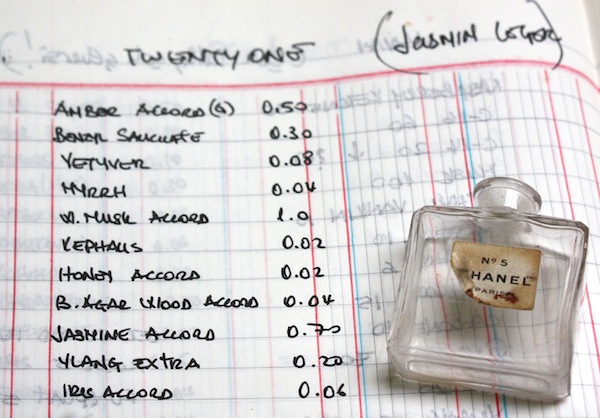 TWENTY ONE (JASMIN LEGER)
AMBER ACCORD (G) 0.50
BENZYL SALICYLATE 0.30
VETYVER 0.08
MYRRH 0.04
W. MUSK ACCORD 1.0
KEPHALIS 0.02
HONEY ACCORD 0.02
B. AGAR WOOD ACCORD 0.04
JASMINE ACCORD 0.70
YLANG EXTRA 0.20
IRIS ACCORD 0.06
N°5
HANEL
PARIS